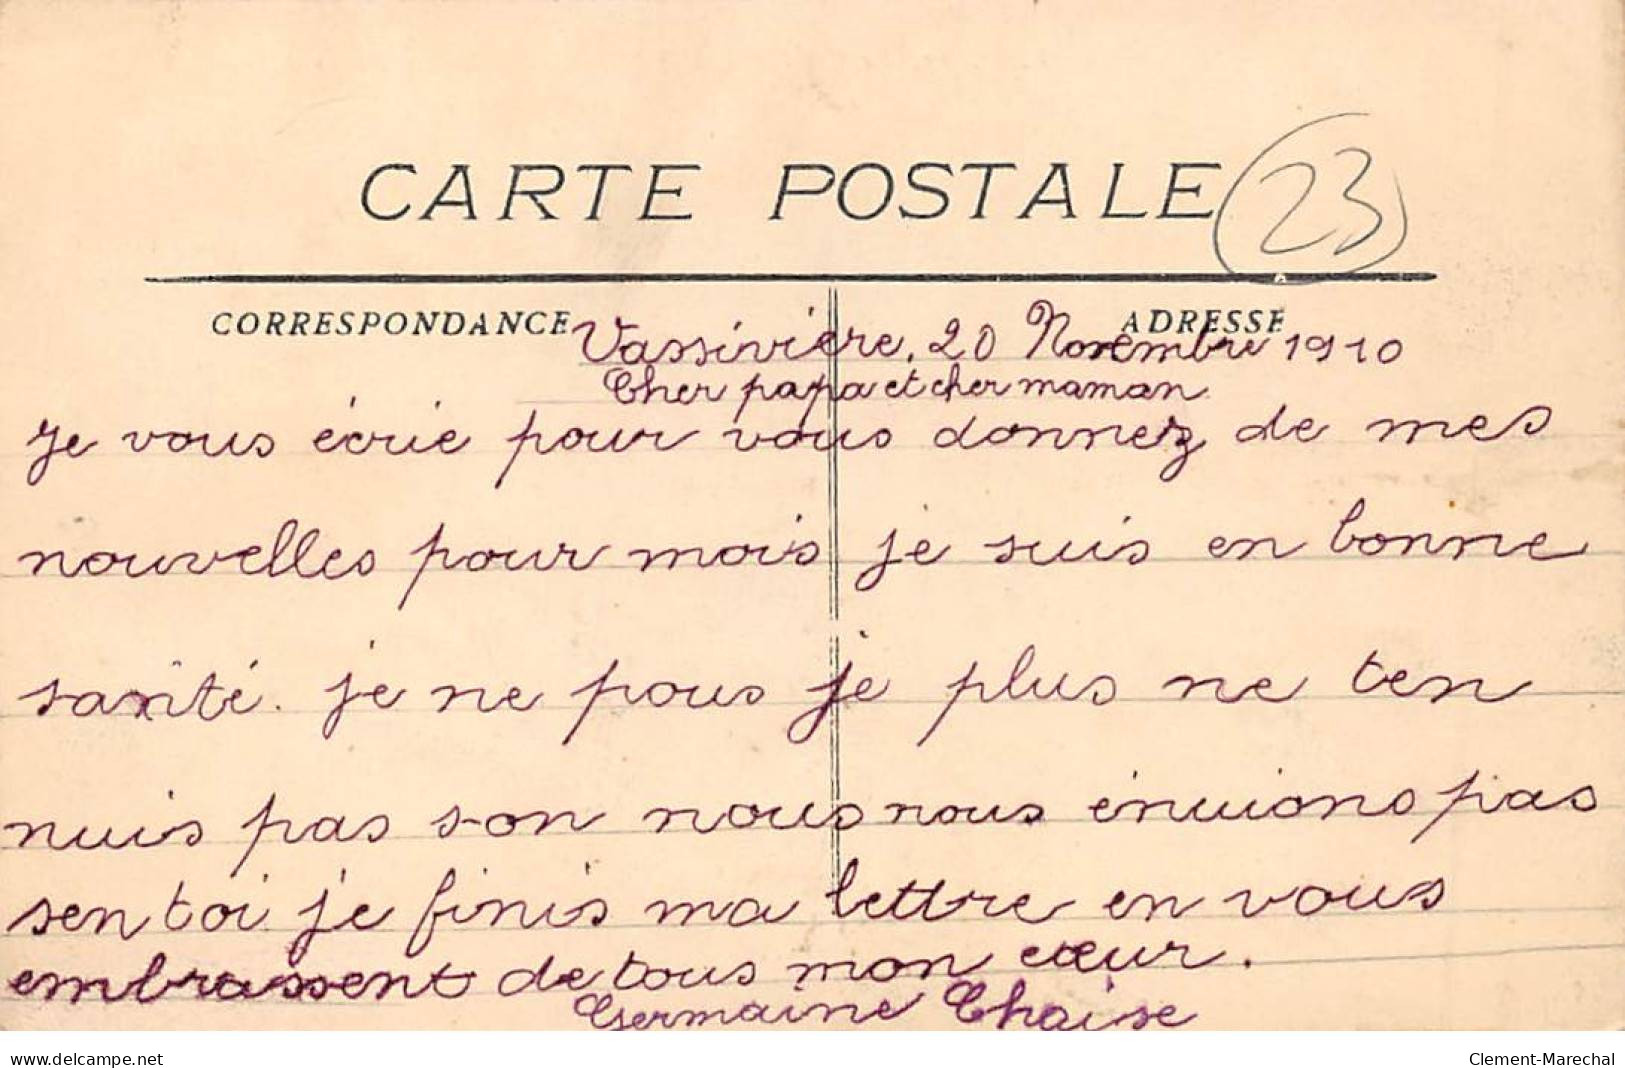 CARTE POSTALE
23
CORRESPONDANCE
ADRESSE
Vassivière, 20 Novembre 1910
Cher papa et cher maman
Je vous écrie pour vous donnez de mes
nouvelles pour mois je suis en bonne
santé. je ne pous je plus ne ten
nuis pas s-on nous nous énuions pas
sen toi je finis ma lettre en vous
embrassent de tous mon cœur.
Germaine Chaise
www.delcampe.net
Clement-Marechal